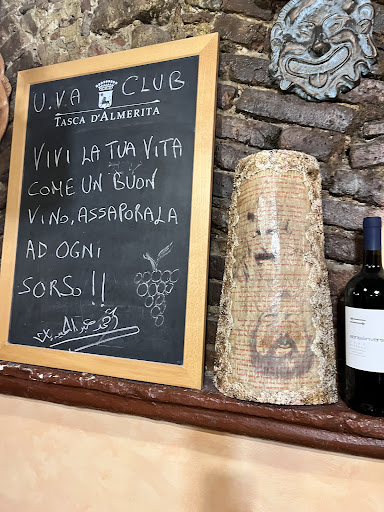 U.V.A CLUB
TASCA D'ALMERITA
VIVI LA TUA VITA
COME UN BUON
VINO, ASSAPORALA
AD OGNI
SORSO !!